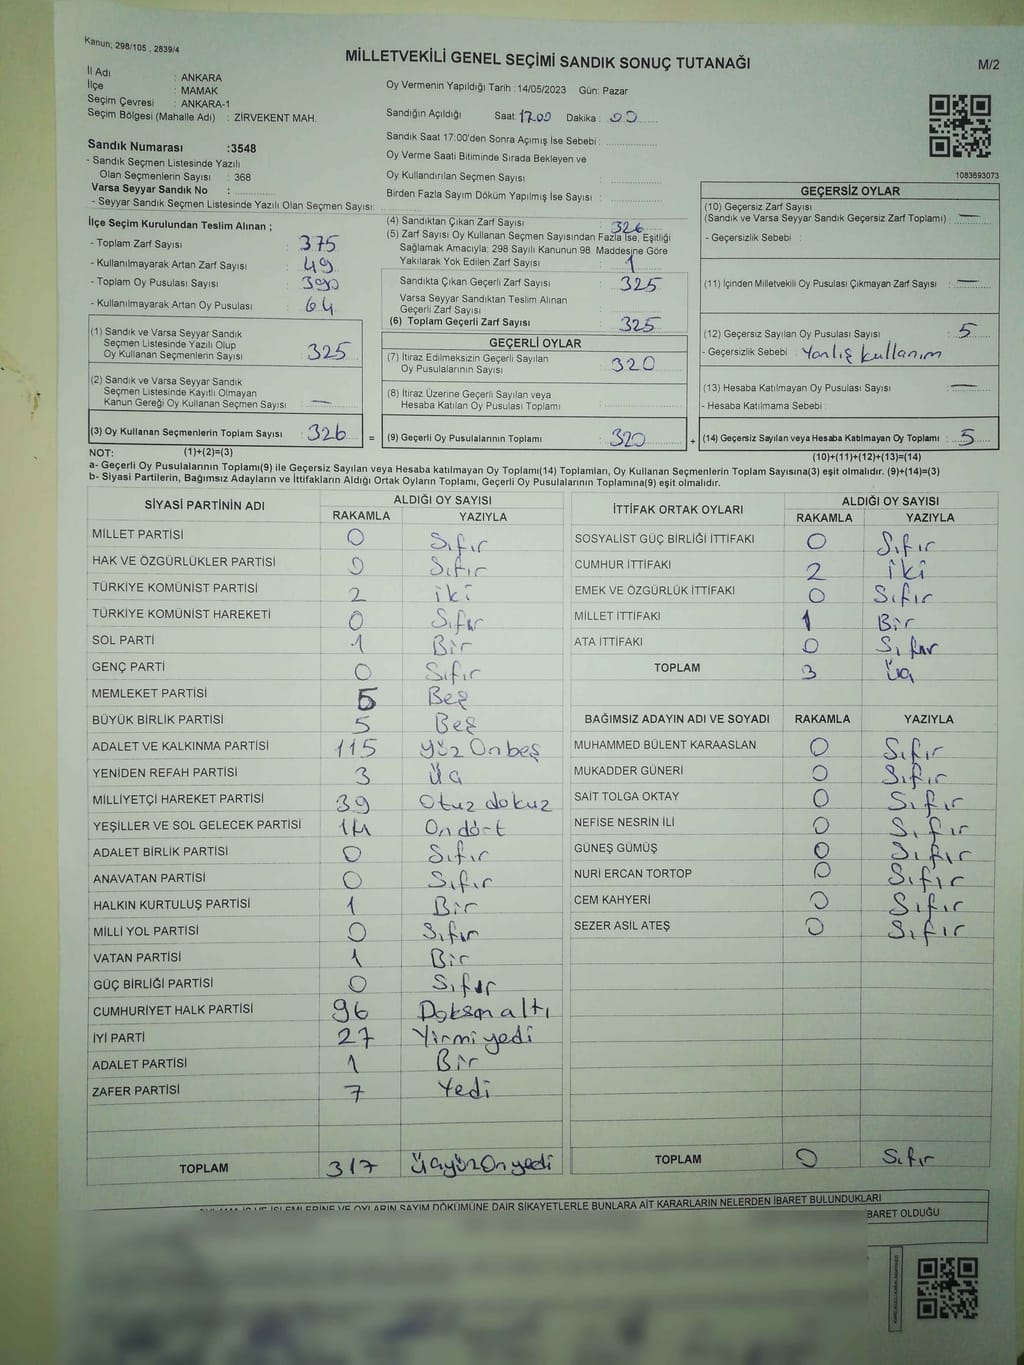 Kanun; 298/105 , 2839/4
MİLLETVEKİLİ GENEL SEÇİMİ SANDIK SONUÇ TUTANAĞI
M/2
İl Adı : ANKARA
İlçe : MAMAK
Seçim Çevresi : ANKARA-1
Seçim Bölgesi (Mahalle Adı) : ZİRVEKENT MAH.
Sandık Numarası :3548
- Sandık Seçmen Listesinde Yazılı
Olan Seçmenlerin Sayısı : 368
Varsa Seyyar Sandık No :
- Seyyar Sandık Seçmen Listesinde Yazılı Olan Seçmen Sayısı:
Oy Vermenin Yapıldığı Tarih : 14/05/2023 Gün: Pazar
Sandığın Açıldığı Saat: 17.00 Dakika : 00
Sandık Saat 17:00'den Sonra Açımış İse Sebebi :
Oy Verme Saati Bitiminde Sırada Bekleyen ve
Oy Kullandırılan Seçmen Sayısı :
Birden Fazla Sayım Döküm Yapılmış İse Sayısı :
1083693073
İlçe Seçim Kurulundan Teslim Alınan ;
- Toplam Zarf Sayısı : 375
- Kullanılmayarak Artan Zarf Sayısı : 49
- Toplam Oy Pusulası Sayısı : 390
- Kullanılmayarak Artan Oy Pusulası : 64
(1) Sandık ve Varsa Seyyar Sandık
Seçmen Listesinde Yazılı Olup
Oy Kullanan Seçmenlerin Sayısı : 325
(2) Sandık ve Varsa Seyyar Sandık
Seçmen Listesinde Kayıtlı Olmayan
Kanun Gereği Oy Kullanan Seçmen Sayısı : —
(3) Oy Kullanan Seçmenlerin Toplam Sayısı : 326 =
(4) Sandıktan Çıkan Zarf Sayısı : 326
(5) Zarf Sayısı Oy Kullanan Seçmen Sayısından Fazla İse, Eşitliği
Sağlamak Amacıyla; 298 Sayılı Kanunun 98. Maddesine Göre
Yakılarak Yok Edilen Zarf Sayısı : 1
Sandıkta Çıkan Geçerli Zarf Sayısı : 325
Varsa Seyyar Sandıktan Teslim Alınan
Geçerli Zarf Sayısı :
(6) Toplam Geçerli Zarf Sayısı : 325
GEÇERLİ OYLAR
(7) İtiraz Edilmeksizin Geçerli Sayılan
Oy Pusulalarının Sayısı : 320
(8) İtiraz Üzerine Geçerli Sayılan veya
Hesaba Katılan Oy Pusulası Toplamı :
(9) Geçerli Oy Pusulalarının Toplamı : 320 +
GEÇERSİZ OYLAR
(10) Geçersiz Zarf Sayısı
(Sandık ve Varsa Seyyar Sandık Geçersiz Zarf Toplamı) : —
- Geçersizlik Sebebi :
(11) İçinden Milletvekili Oy Pusulası Çıkmayan Zarf Sayısı : —
(12) Geçersiz Sayılan Oy Pusulası Sayısı : 5
- Geçersizlik Sebebi : Yanlış kullanım
(13) Hesaba Katılmayan Oy Pusulası Sayısı : —
- Hesaba Katılmama Sebebi :
(14) Geçersiz Sayılan veya Hesaba Katılmayan Oy Toplamı : 5
NOT: (1)+(2)=(3)
(10)+(11)+(12)+(13)=(14)
a- Geçerli Oy Pusulalarının Toplamı(9) ile Geçersiz Sayılan veya Hesaba katılmayan Oy Toplamı(14) Toplamları, Oy Kullanan Seçmenlerin Toplam Sayısına(3) eşit olmalıdır. (9)+(14)=(3)
b- Siyasi Partilerin, Bağımsız Adayların ve İttifakların Aldığı Ortak Oyların Toplamı, Geçerli Oy Pusulalarının Toplamına(9) eşit olmalıdır.
SİYASİ PARTİNİN ADI ALDIĞI OY SAYISI
RAKAMLA YAZIYLA
MİLLET PARTİSİ 0 Sıfır
HAK VE ÖZGÜRLÜKLER PARTİSİ 0 Sıfır
TÜRKİYE KOMÜNİST PARTİSİ 2 iki
TÜRKİYE KOMÜNİST HAREKETİ 0 Sıfır
SOL PARTİ 1 Bir
GENÇ PARTİ 0 Sıfır
MEMLEKET PARTİSİ 5 Beş
BÜYÜK BİRLİK PARTİSİ 5 Beş
ADALET VE KALKINMA PARTİSİ 115 Yüz Onbeş
YENİDEN REFAH PARTİSİ 3 Üç
MİLLİYETÇİ HAREKET PARTİSİ 39 Otuz dokuz
YEŞİLLER VE SOL GELECEK PARTİSİ 14 On dört
ADALET BİRLİK PARTİSİ 0 Sıfır
ANAVATAN PARTİSİ 0 Sıfır
HALKIN KURTULUŞ PARTİSİ 1 Bir
MİLLİ YOL PARTİSİ 0 Sıfır
VATAN PARTİSİ 1 Bir
GÜÇ BİRLİĞİ PARTİSİ 0 Sıfır
CUMHURİYET HALK PARTİSİ 96 Doksan altı
İYİ PARTİ 27 Yirmi yedi
ADALET PARTİSİ 1 Bir
ZAFER PARTİSİ 7 Yedi
TOPLAM 317 Üçyüz On yedi
İTTİFAK ORTAK OYLARI ALDIĞI OY SAYISI
RAKAMLA YAZIYLA
SOSYALİST GÜÇ BİRLİĞİ İTTİFAKI 0 Sıfır
CUMHUR İTTİFAKI 2 iki
EMEK VE ÖZGÜRLÜK İTTİFAKI 0 Sıfır
MİLLET İTTİFAKI 1 Bir
ATA İTTİFAKI 0 Sıfır
TOPLAM 3 Üç
BAĞIMSIZ ADAYIN ADI VE SOYADI RAKAMLA YAZIYLA
MUHAMMED BÜLENT KARAASLAN 0 Sıfır
MUKADDER GÜNERİ 0 Sıfır
SAİT TOLGA OKTAY 0 Sıfır
NEFİSE NESRİN İLİ 0 Sıfır
GÜNEŞ GÜMÜŞ 0 Sıfır
NURİ ERCAN TORTOP 0 Sıfır
CEM KAHYERİ 0 Sıfır
SEZER ASİL ATEŞ 0 Sıfır
TOPLAM 0 Sıfır
İŞLEMLERİNE VE OYLARIN SAYIM DÖKÜMÜNE DAİR ŞİKAYETLERLE BUNLARA AİT KARARLARIN NELERDEN İBARET BULUNDUKLARI
BARET OLDUĞU